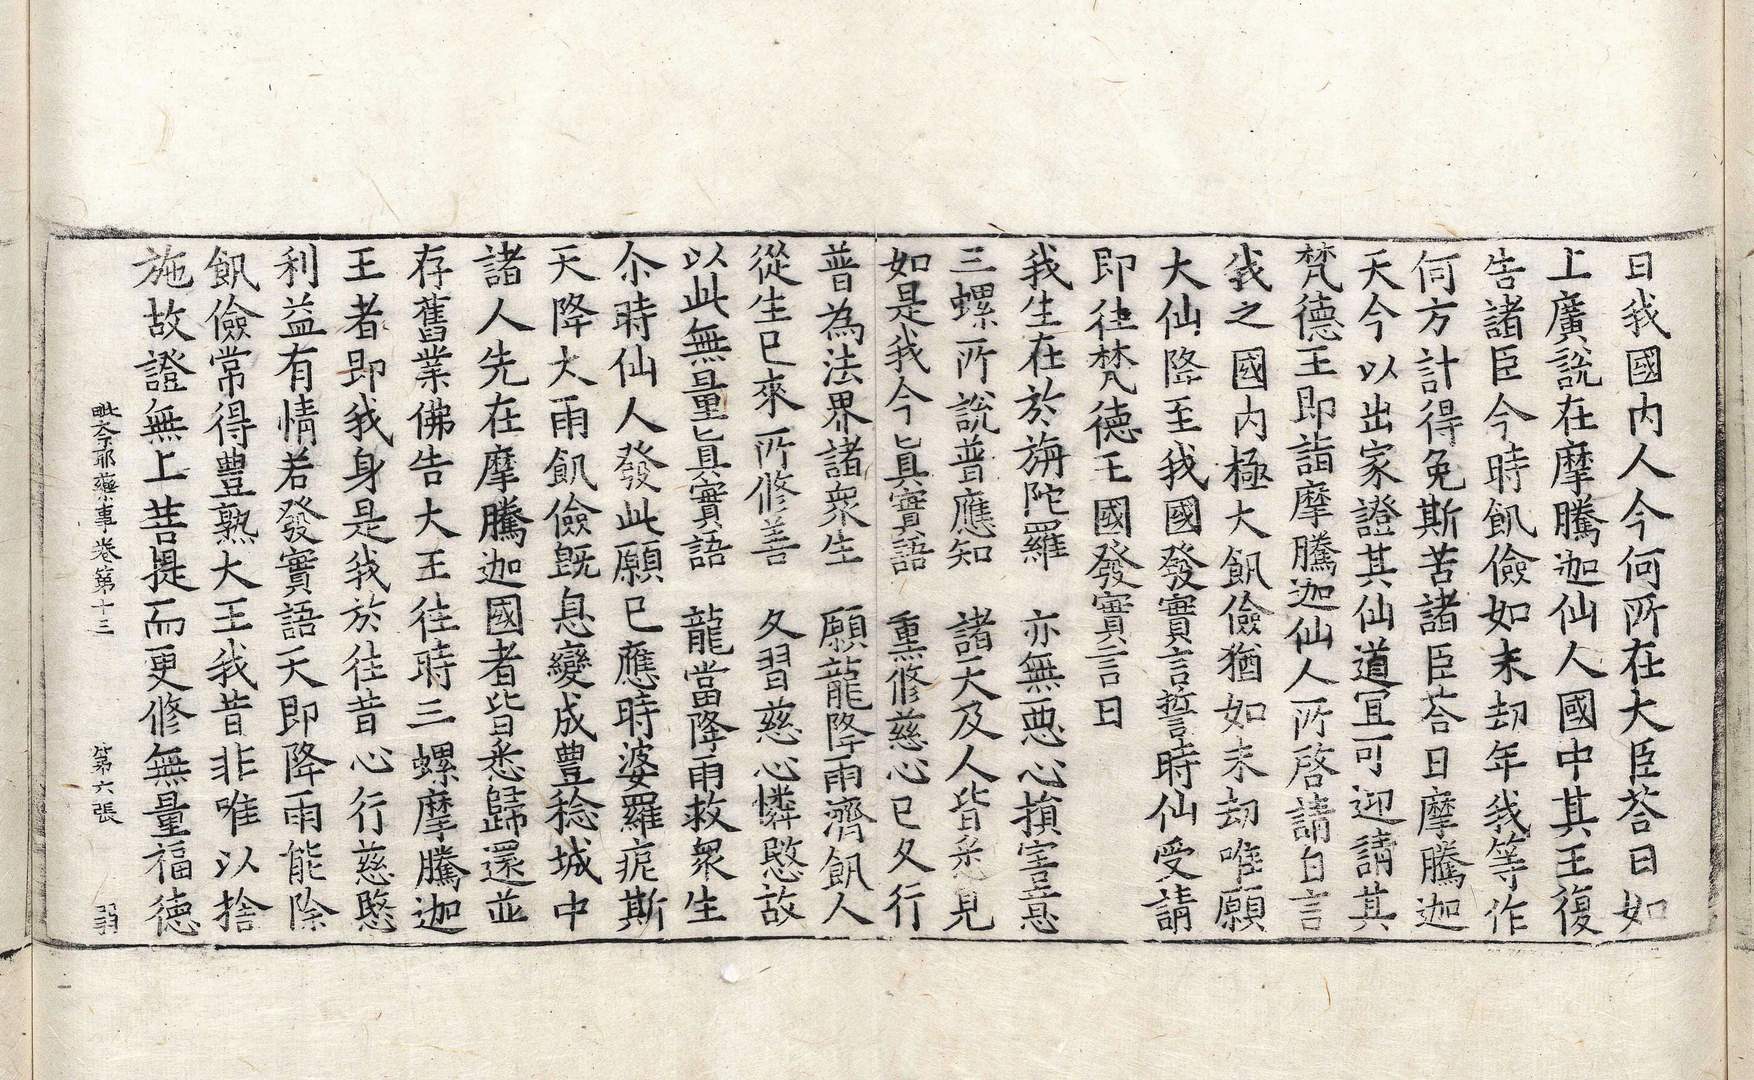 曰我國內人今何所在大臣荅曰如
上廣說在摩騰迦仙人國中其王復
告諸臣今時飢儉如末劫年我等作
何方計得免斯苦諸臣荅曰摩騰迦
天今以出家證其仙道宜可迎請其
梵德王即詣摩騰迦仙人所啓請白言
我之國內極大飢儉猶如末劫唯願
大仙降至我國發實言誓時仙受請
即往梵德王國發實言曰
我生在於旃陀羅　亦無惡心損害意
三螺所說普應知　諸天及人皆悉見
如是我今眞實語　重修慈心已久行
普為法界諸衆生　願龍降雨濟飢人
從生已來所修善　久習慈心憐愍故
以此無量眞實語　龍當降雨救衆生
尒時仙人發此願已應時婆羅痆斯
天降大雨飢儉旣息變成豊稔城中
諸人先在摩騰迦國者皆悉歸還並
存舊業佛告大王往時三螺摩騰迦
王者即我身是我於往昔心行慈愍
利益有情若發實語天即降雨能除
飢儉常得豊熟大王我昔非唯以捨
施故證無上菩提而更修無量福德
毗奈耶藥事卷第十三　第六張　羽